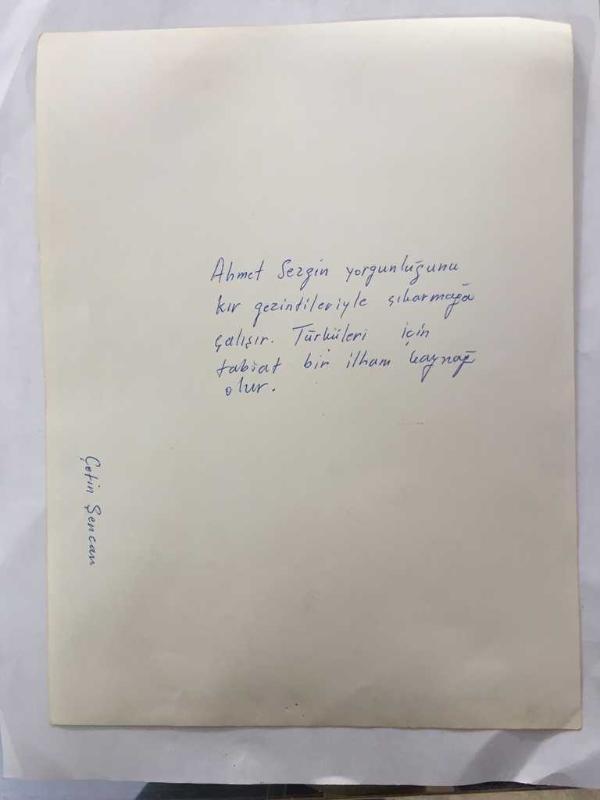 Ahmet Sezgin yorgunluğunu
kır gezintileriyle çıkarmağa
çalışır. Türküleri için
tabiat bir ilham kaynağı
olur.
Çetin Şencan